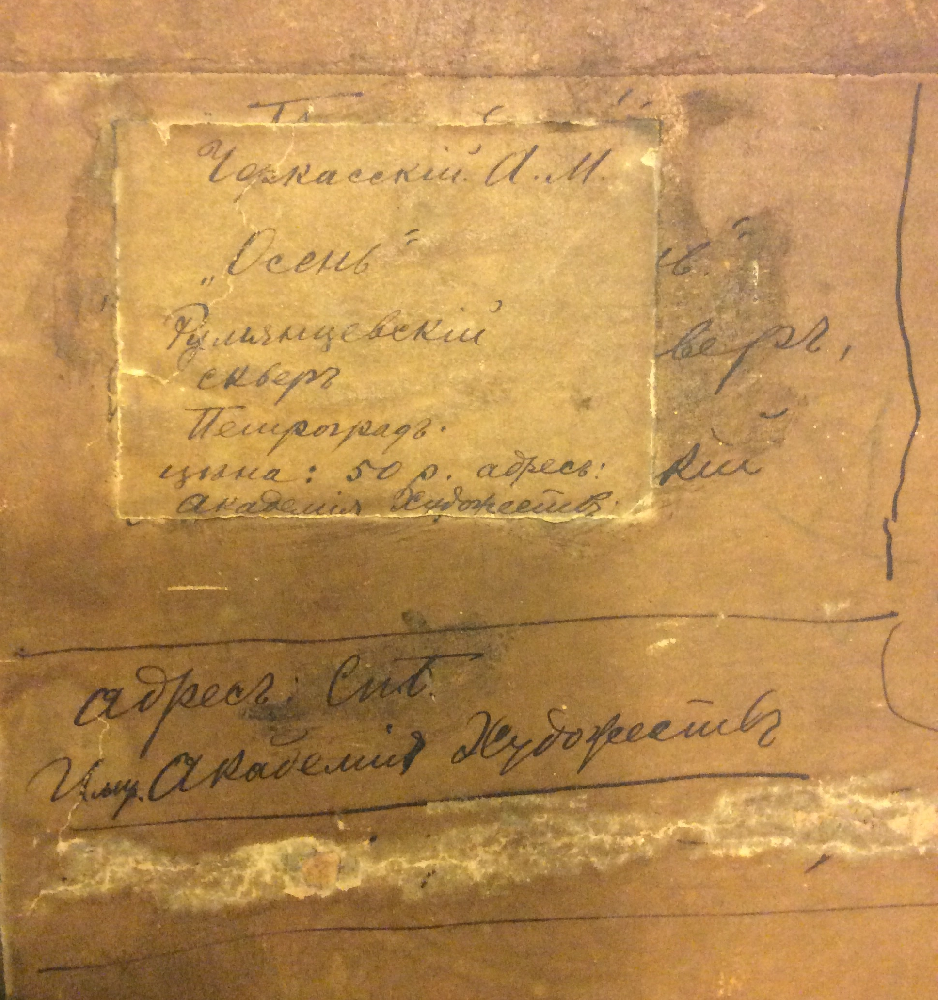 Черкасскій А. М.
„Осень“
Румянцевскій
скверъ
Петроградъ.
цѣна: 50 р. адресъ:
Академія Художествъ.
ь."
веръ,
кій
адресъ: Спб.
Имп. Академія Художествъ